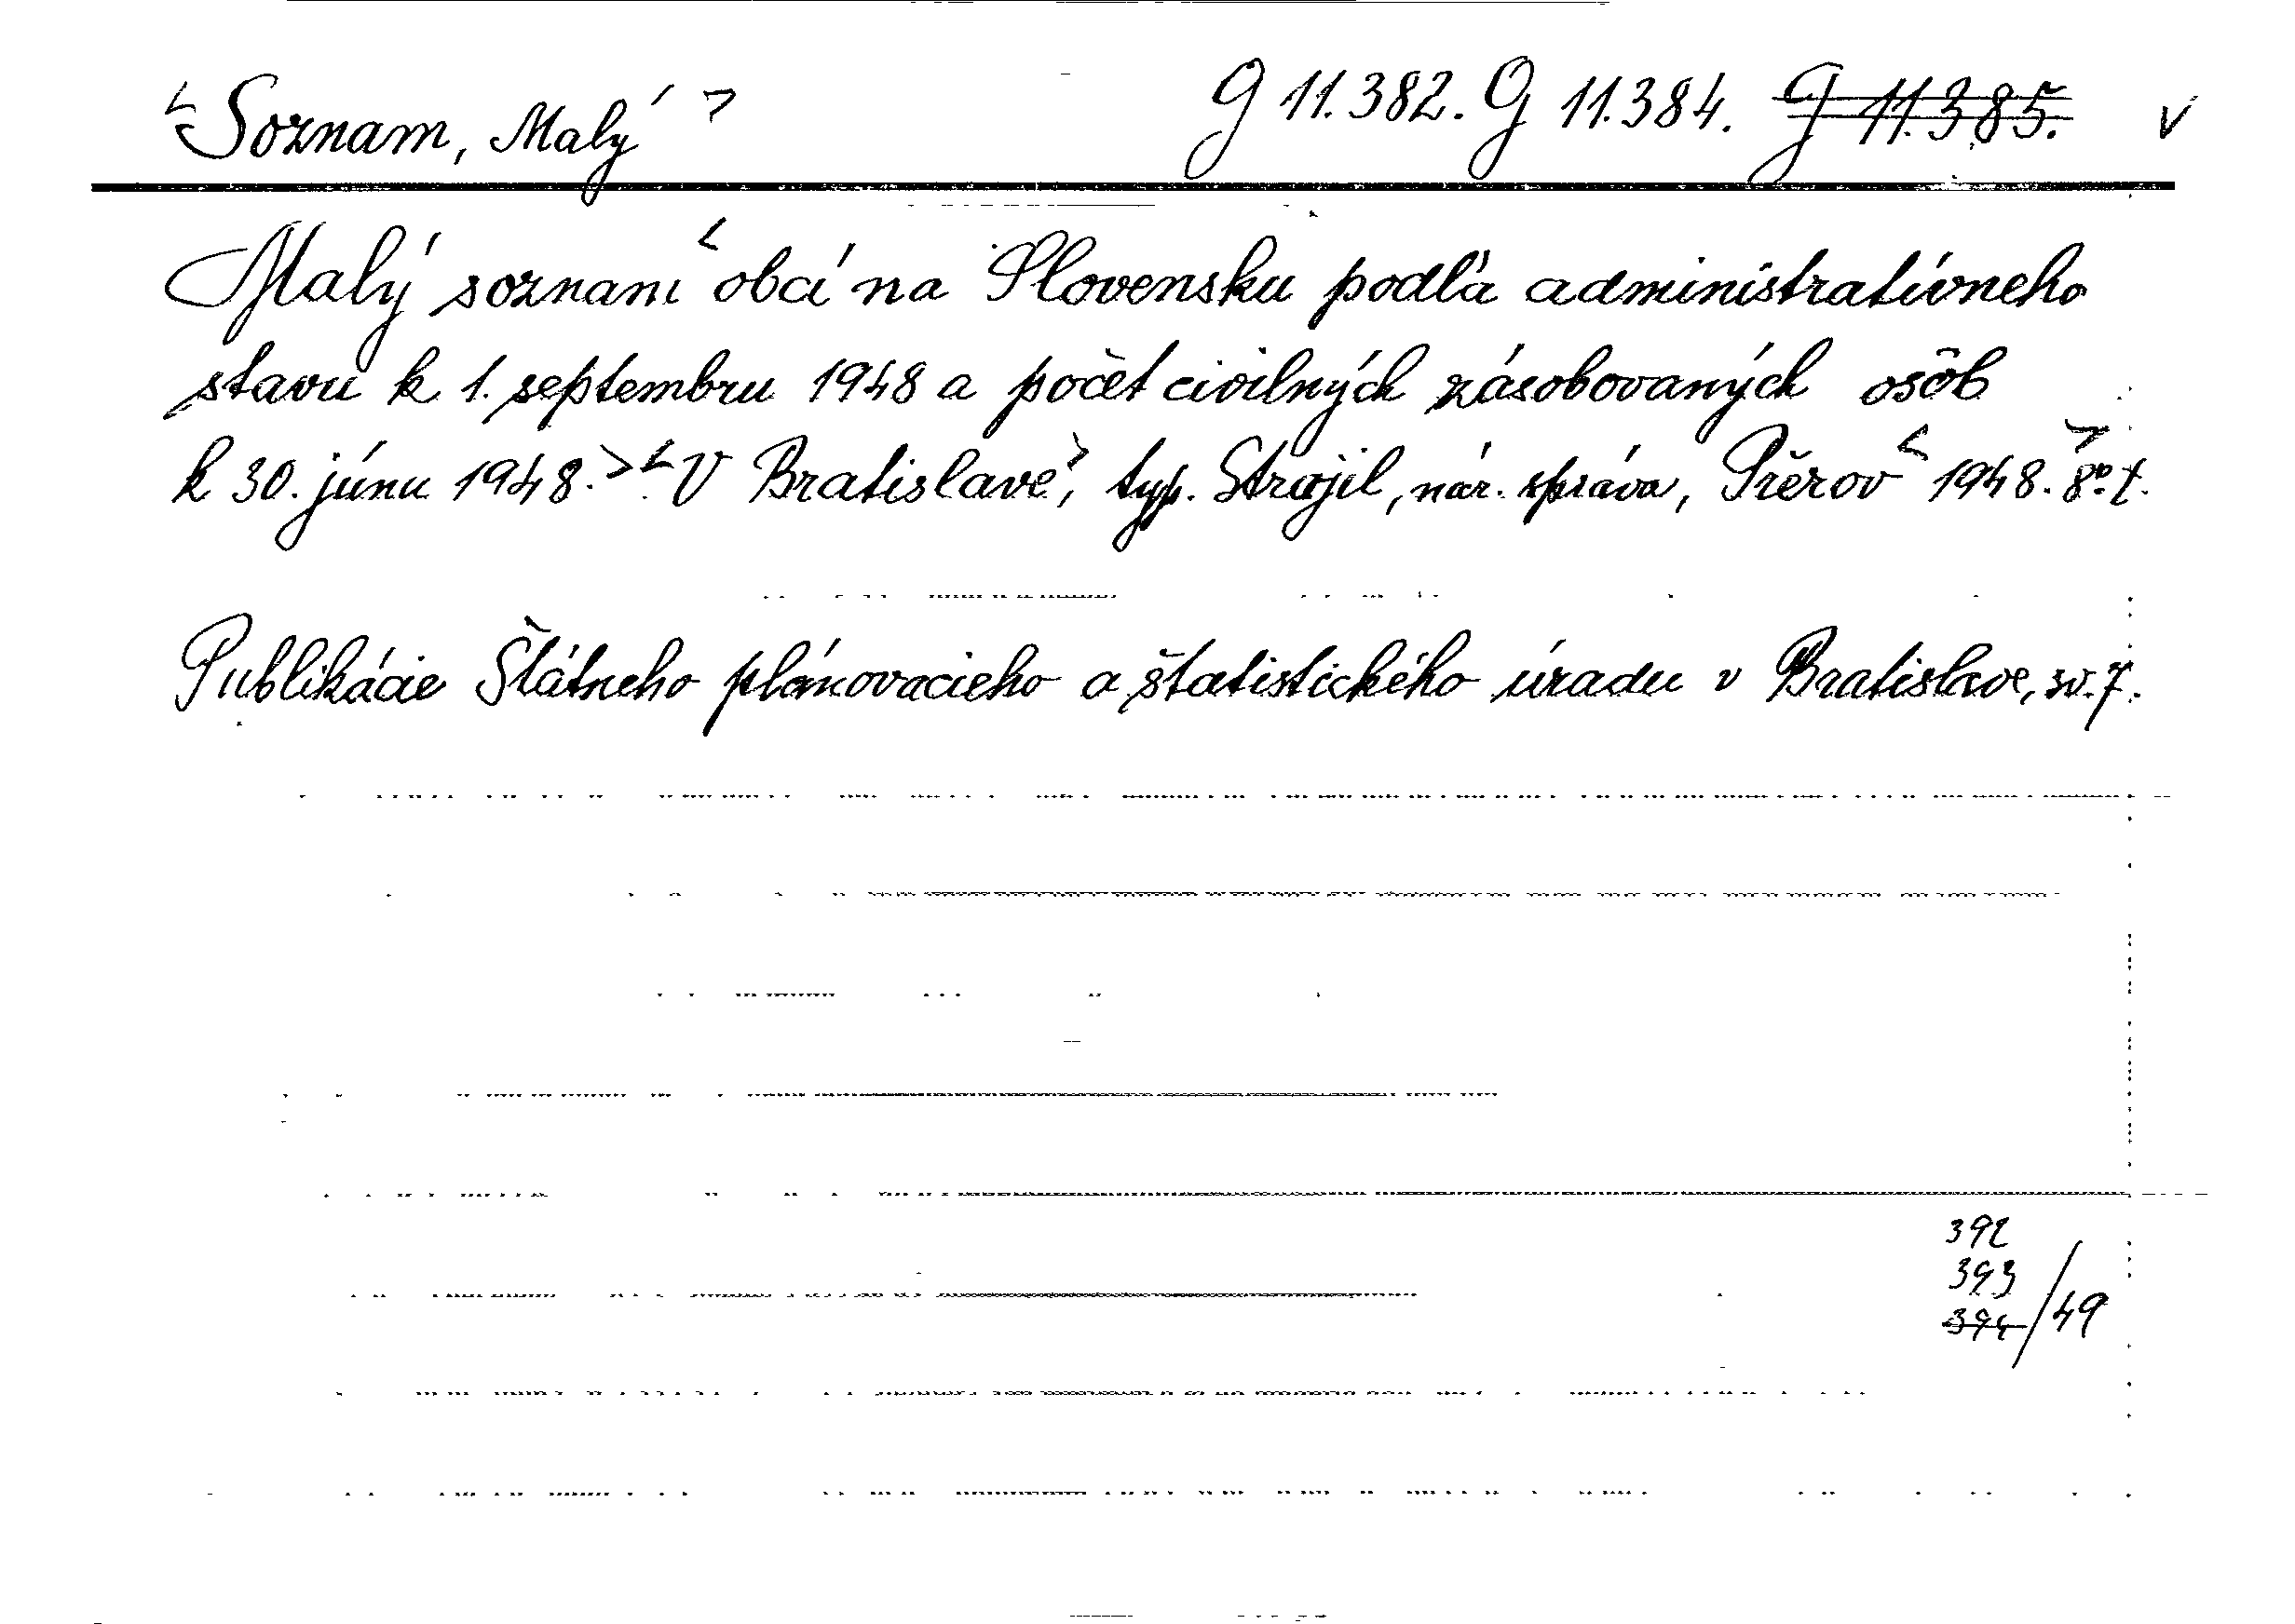 <Soznam, Malý> G 11.382. G 11.384. G 11.385. V
Malý soznam <obcí na Slovensku podľa administratívneho
stavu k 1. septembru 1948 a počet civilných zásobovaných osôb
k 30. júnu 1948.> <V Bratislave>, typ. Strojil, nár. správa, Přerov <1948. 8°.> t.
Publikácie Štátneho plánovacieho a štatistického úradu v Bratislave, sv. 7.
392
393
394 /49